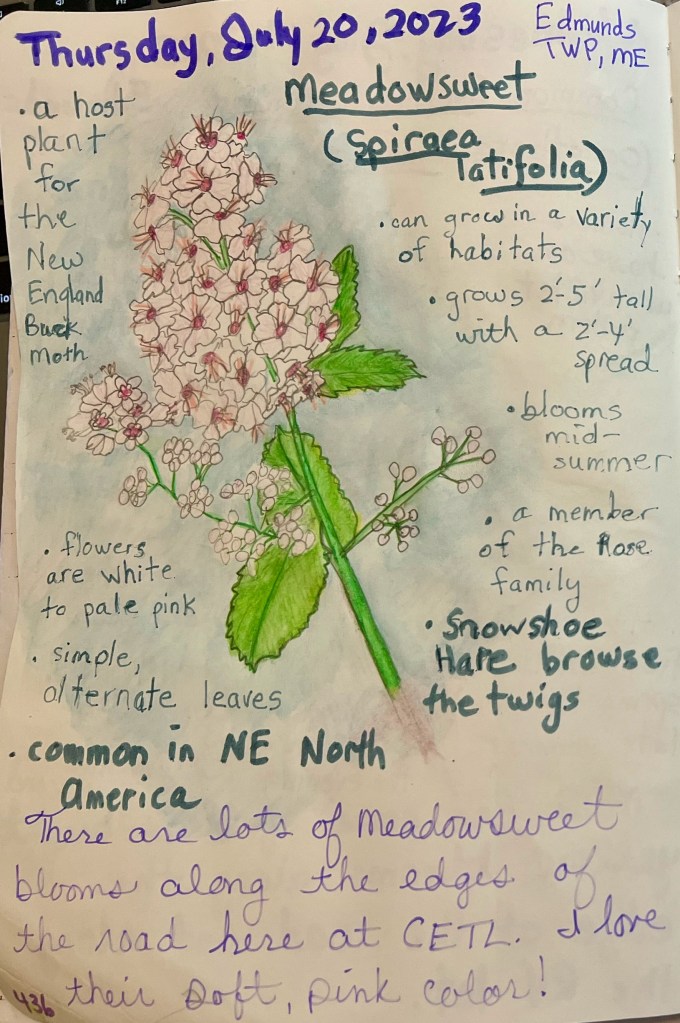 Thursday, July 20, 2023
Edmunds
TWP, ME
Meadowsweet
(Spiraea
latifolia)
• a host
plant
for
the
New
England
Buck
Moth
• can grow in a variety
of habitats
• grows 2'-5' tall
with a 2'-4'
spread
• blooms
mid-
summer
• a member
of the Rose
family
• Snowshoe
Hare browse
the twigs
• flowers
are white
to pale pink
• simple,
alternate leaves
• common in NE North
America
There are lots of Meadowsweet
blooms along the edges of
the road here at CETL. I love
their soft, pink color!
436